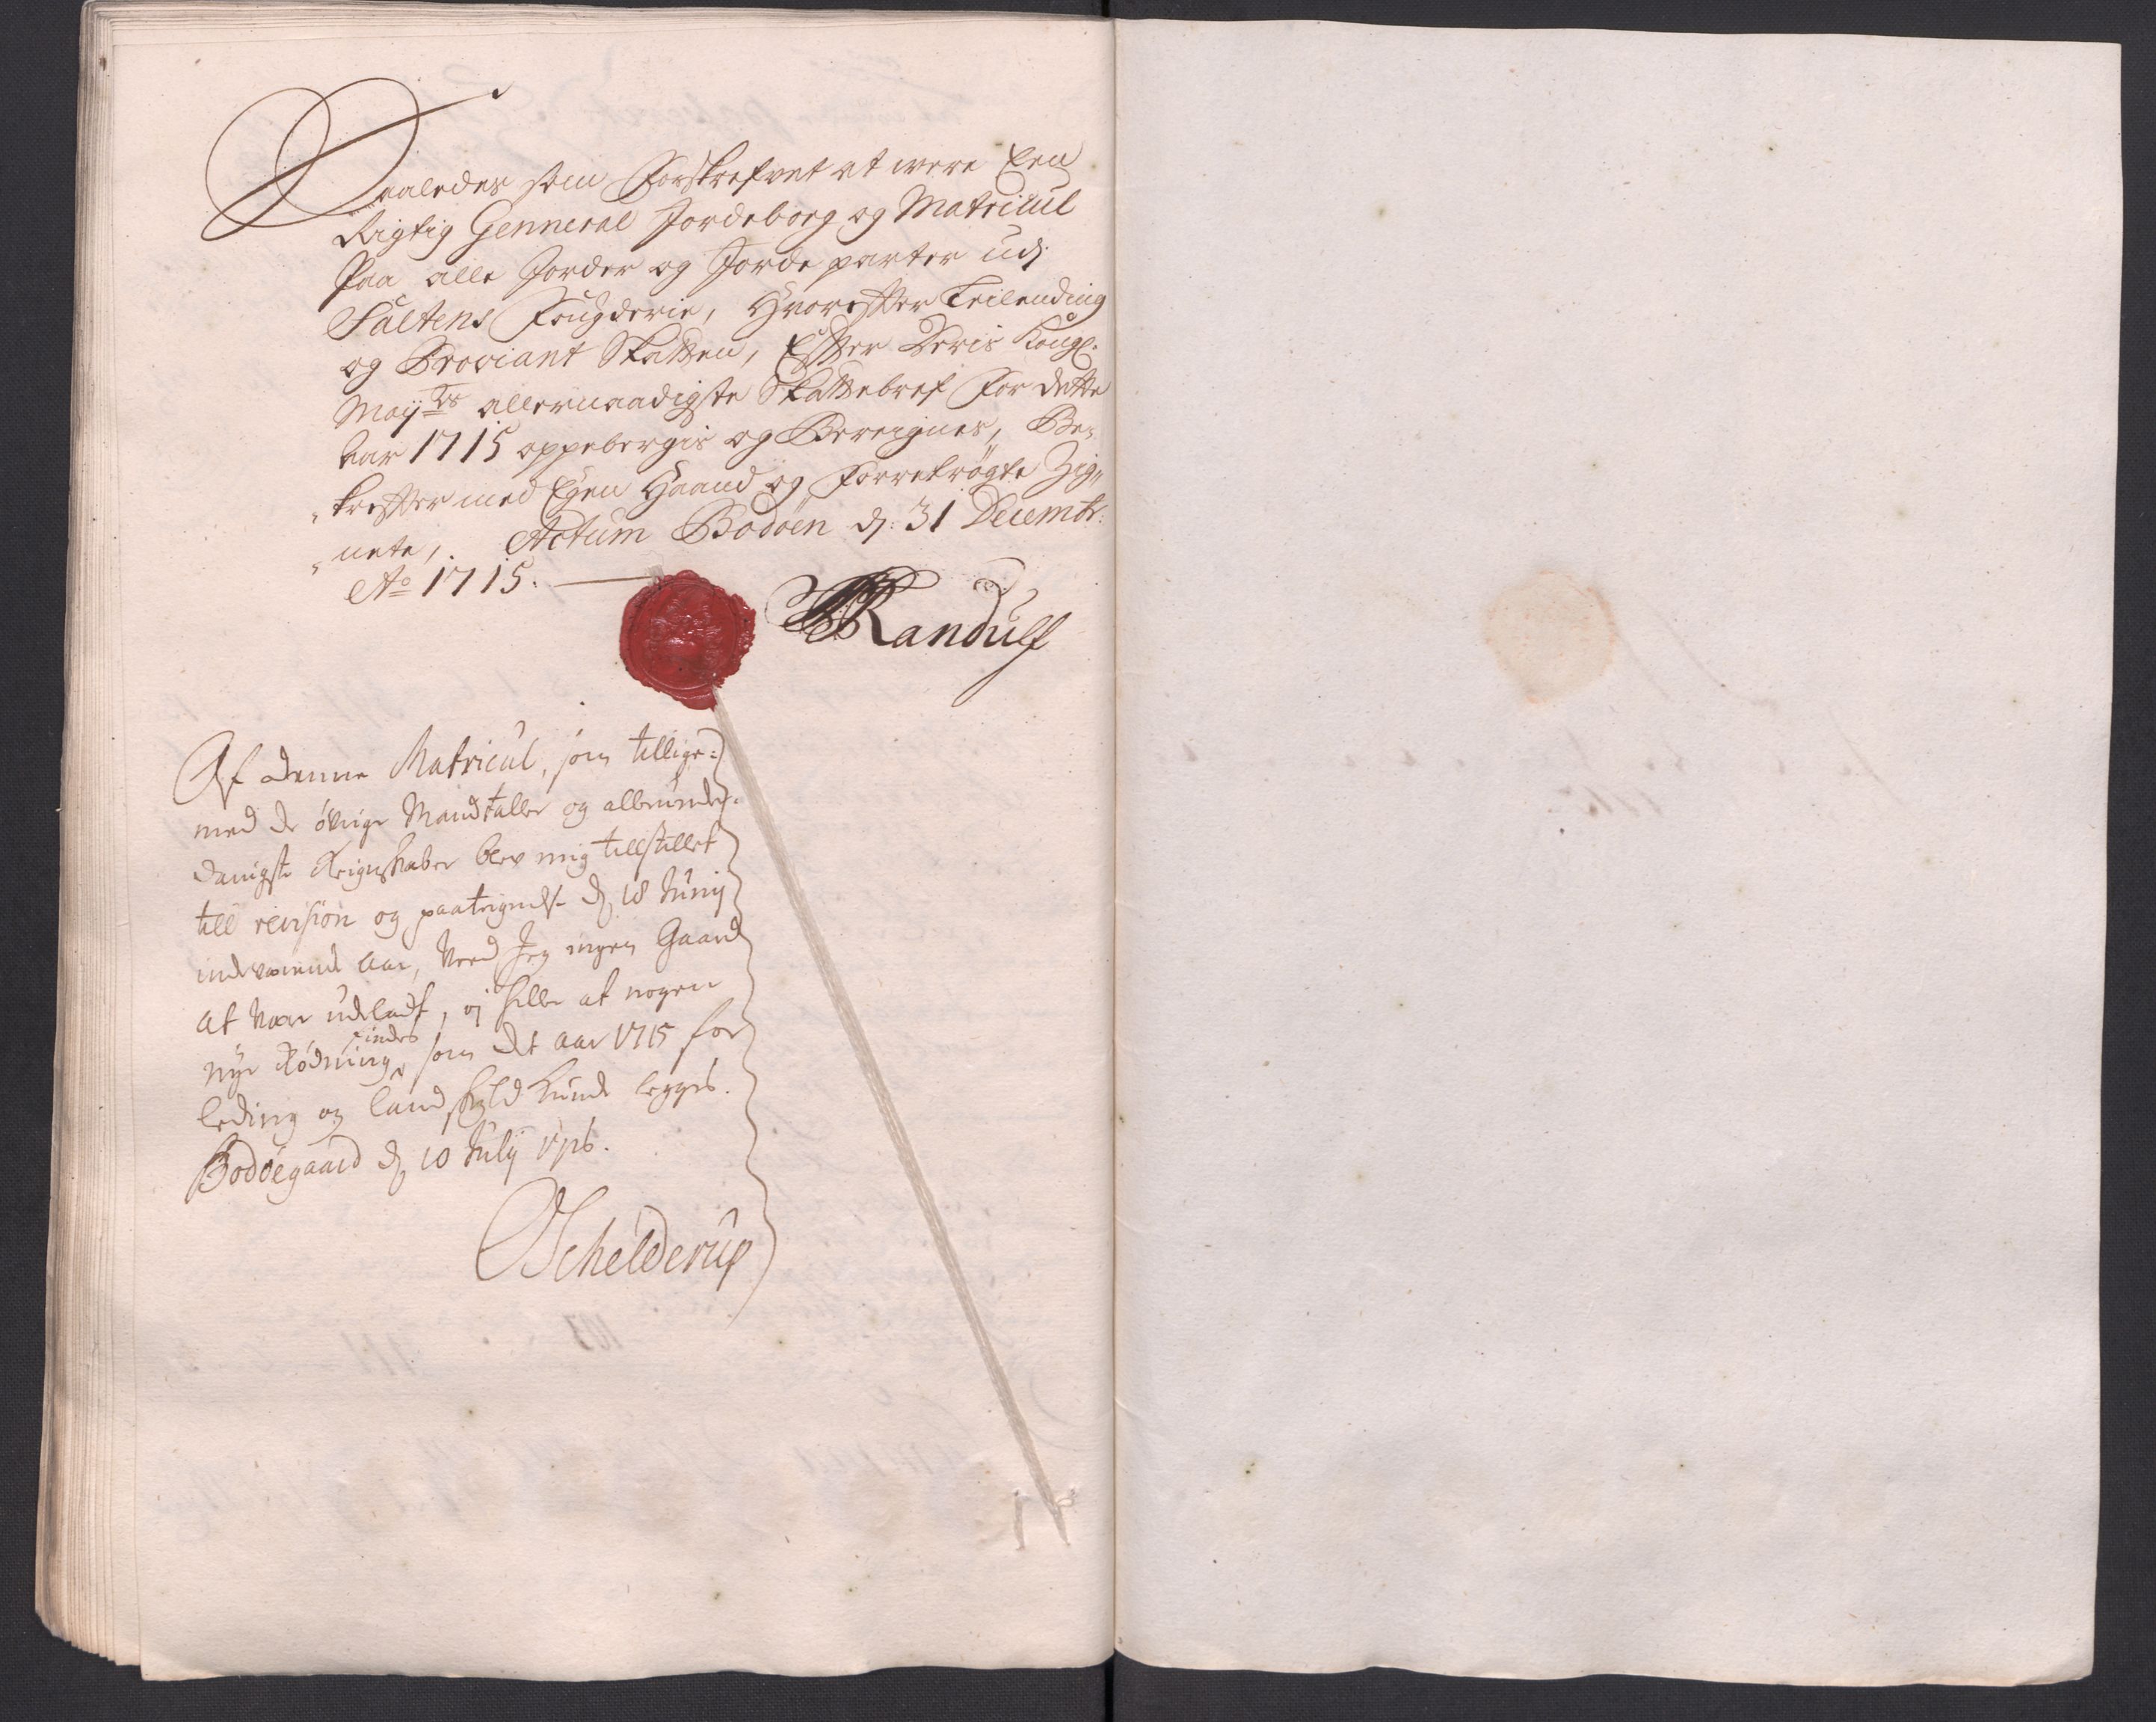 Saaledes som Forskrefvet at were Een
Rigtig Genneral Jordeborg og Matricul
Paa alle Jorder og Jorde parter udj
Saltens Fougderie, Hvorefter Leilending
og Proviant Skatten, Efter Deris Kongl:
Mayts allernaadigste Skattebref For dette
Aar 1715 oppebergis og Bereignes, Be-
krefter med Egen Haand og Forretrögte Zig„
„nete, Actum Bodöen dj: 31 Decembr:
Ao 1715.
Randulf
Af denne Matricul, som tillige:
med de öfrige Mandtaller og allerunder-
danigste Reignskaber blev mig tillstillet
till revision og paategnelse dj 18 Junij
indeværende Aar, veed Jeg ingen Gaard
at være udeladt, ej heller at nogen
nye Rödning findes som det Aar 1715 for
leding og landskyld kunde legges.
Bodöegaard dj 10 Julij 1716.
Schelderup